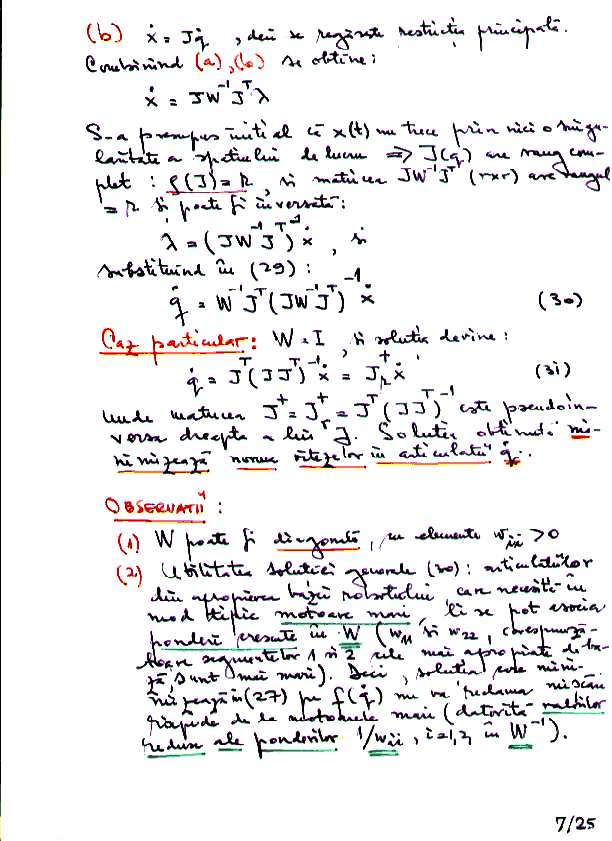 (b) ẋ = Jq̇ , deci se regăsește restricția principală.
Combinînd (a),(b) se obține:
ẋ = JW⁻¹Jᵀλ
S-a presupus inițial că x(t) nu trece prin nici o singu-
laritate a spațiului de lucru ⇒ J(q) are rang com-
plet : ρ(J) = r, și matricea JW⁻¹Jᵀ (r×r) are rangul
= r și poate fi inversată:
λ = (JW⁻¹Jᵀ)⁻¹ẋ , și
substituind în (29) :
q̇ = W⁻¹Jᵀ(JW⁻¹Jᵀ)⁻¹ẋ (30)
Caz particular: W = I , și soluția devine :
q̇ = Jᵀ(JJᵀ)⁻¹ẋ = Jᵣ⁺ẋ (31)
unde matricea J⁺ = Jᵣ⁺ = Jᵀ(JJᵀ)⁻¹ este pseudoin-
versa dreapta a lui J. Soluția obținută mi-
nimizează norma vitezelor în articulații q̇.
OBSERVAȚII :
(1) W poate fi diagonală, cu elemente wᵢᵢ > 0
(2) Utilitatea soluției generale (30): articulațiilor
din apropierea bazei robotului, care necesită în
mod tipic motoare mari, li se pot asocia
ponderi crescute în W (w₁₁ și w₂₂, corespunză-
toare segmentelor 1 și 2 cele mai apropiate de ba-
ză, sunt mai mari). Deci, soluția care mini-
mizează în (27) pe f(q̇) nu va reclama mișcări
rapide de la motoarele mari (datorită valorilor
reduse ale ponderilor 1/wᵢᵢ, i=1,2, în W⁻¹).
7/25